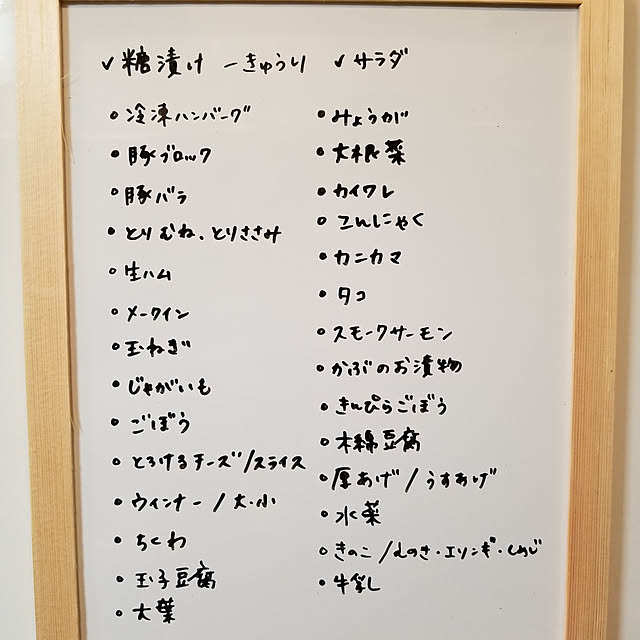 ✓糖漬け ーきゅうり ✓サラダ
・冷凍ハンバーグ
・豚ブロック
・豚バラ
・とりむね、とりささみ
・生ハム
・メークイン
・玉ねぎ
・じゃがいも
・ごぼう
・とろけるチーズ/スライス
・ウィンナー/大・小
・ちくわ
・玉子豆腐
・大葉
・みょうが
・大根菜
・カイワレ
・こんにゃく
・カニカマ
・タコ
・スモークサーモン
・かぶのお漬物
・きんぴらごぼう
・木綿豆腐
・厚あげ/うすあげ
・水菜
・きのこ/えのき・エリンギ・しめじ
・牛乳